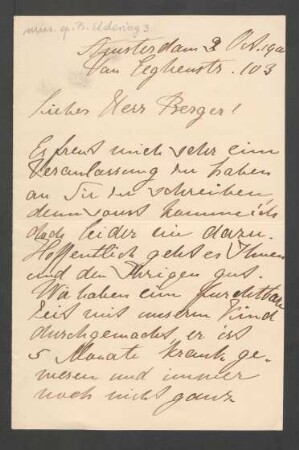 Amsterdam 2 Oct. 190
Van Eeghenstr. 103
Lieber Herr Berger!
Es freut mich sehr eine
Veranlassung zu haben
an Sie zu schreiben
denn sonst komme ich
doch leider nie dazu.
Hoffentlich geht es Ihnen
und den Ihrigen gut.
Wir haben eine furchtbare
Zeit mit unserem Kind
durchgemacht, er ist
5 Monate krank ge-
wesen und immer
noch nicht ganz